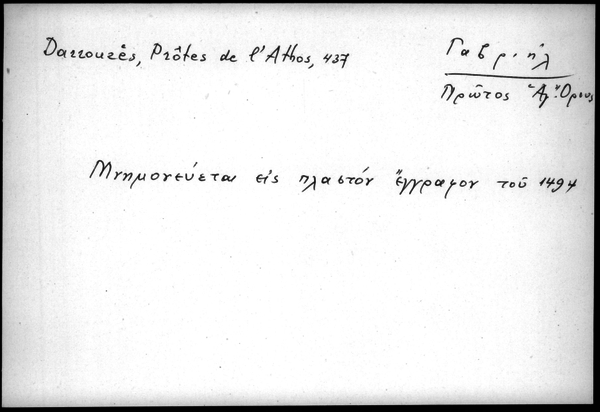 Darrouzês, Prôtes de l'Athos, 437
Γαβριήλ
Πρῶτος Ἁγ. Ὄρους
Μνημονεύεται εἰς πλαστόν ἔγγραφον τοῦ 1494